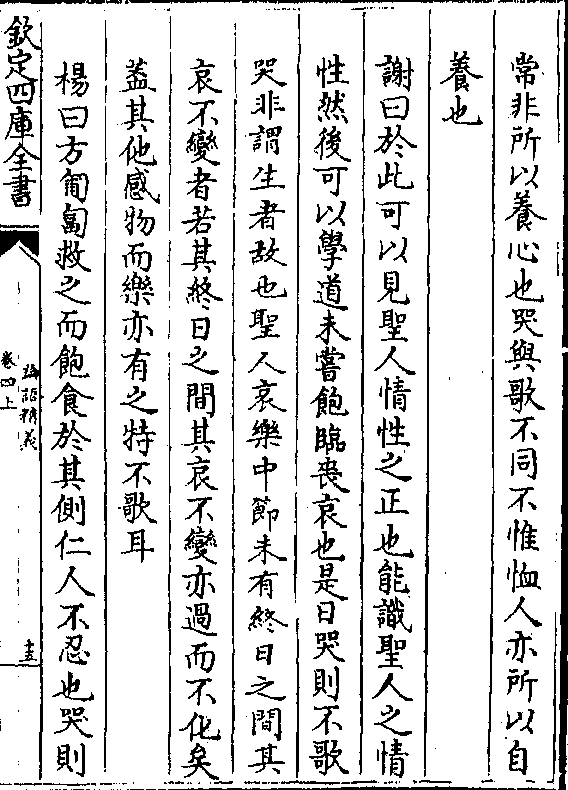 常非所以養心也哭與歌不同不惟恤人亦所以自
養也
謝曰於此可以見聖人情性之正也能識聖人之情
性然後可以學道未嘗飽臨喪哀也是日哭則不歌
哭非謂生者故也聖人哀樂中節未有終日之間其
哀不變者若其終日之間其哀不變亦過而不化矣
蓋其他感物而樂亦有之特不歌耳
楊曰方匍匐救之而飽食於其側仁人不忍也哭則
欽定四庫全書
論語精義
卷四上
十五